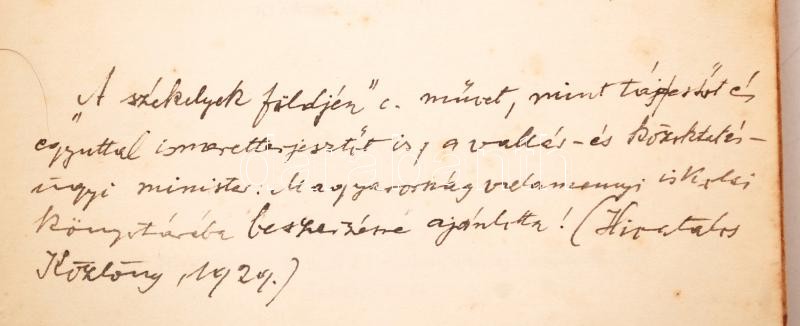 „A székelyek földjén" c. művet, mint tájfestőt és
egyuttal ismeretterjesztőt is, a vallás- és közoktatás-
ügyi minister. Magyarország valamennyi iskolai
könyvtárába beszerzésre ajánlotta! (Hivatalos
Közlöny, 1929.)